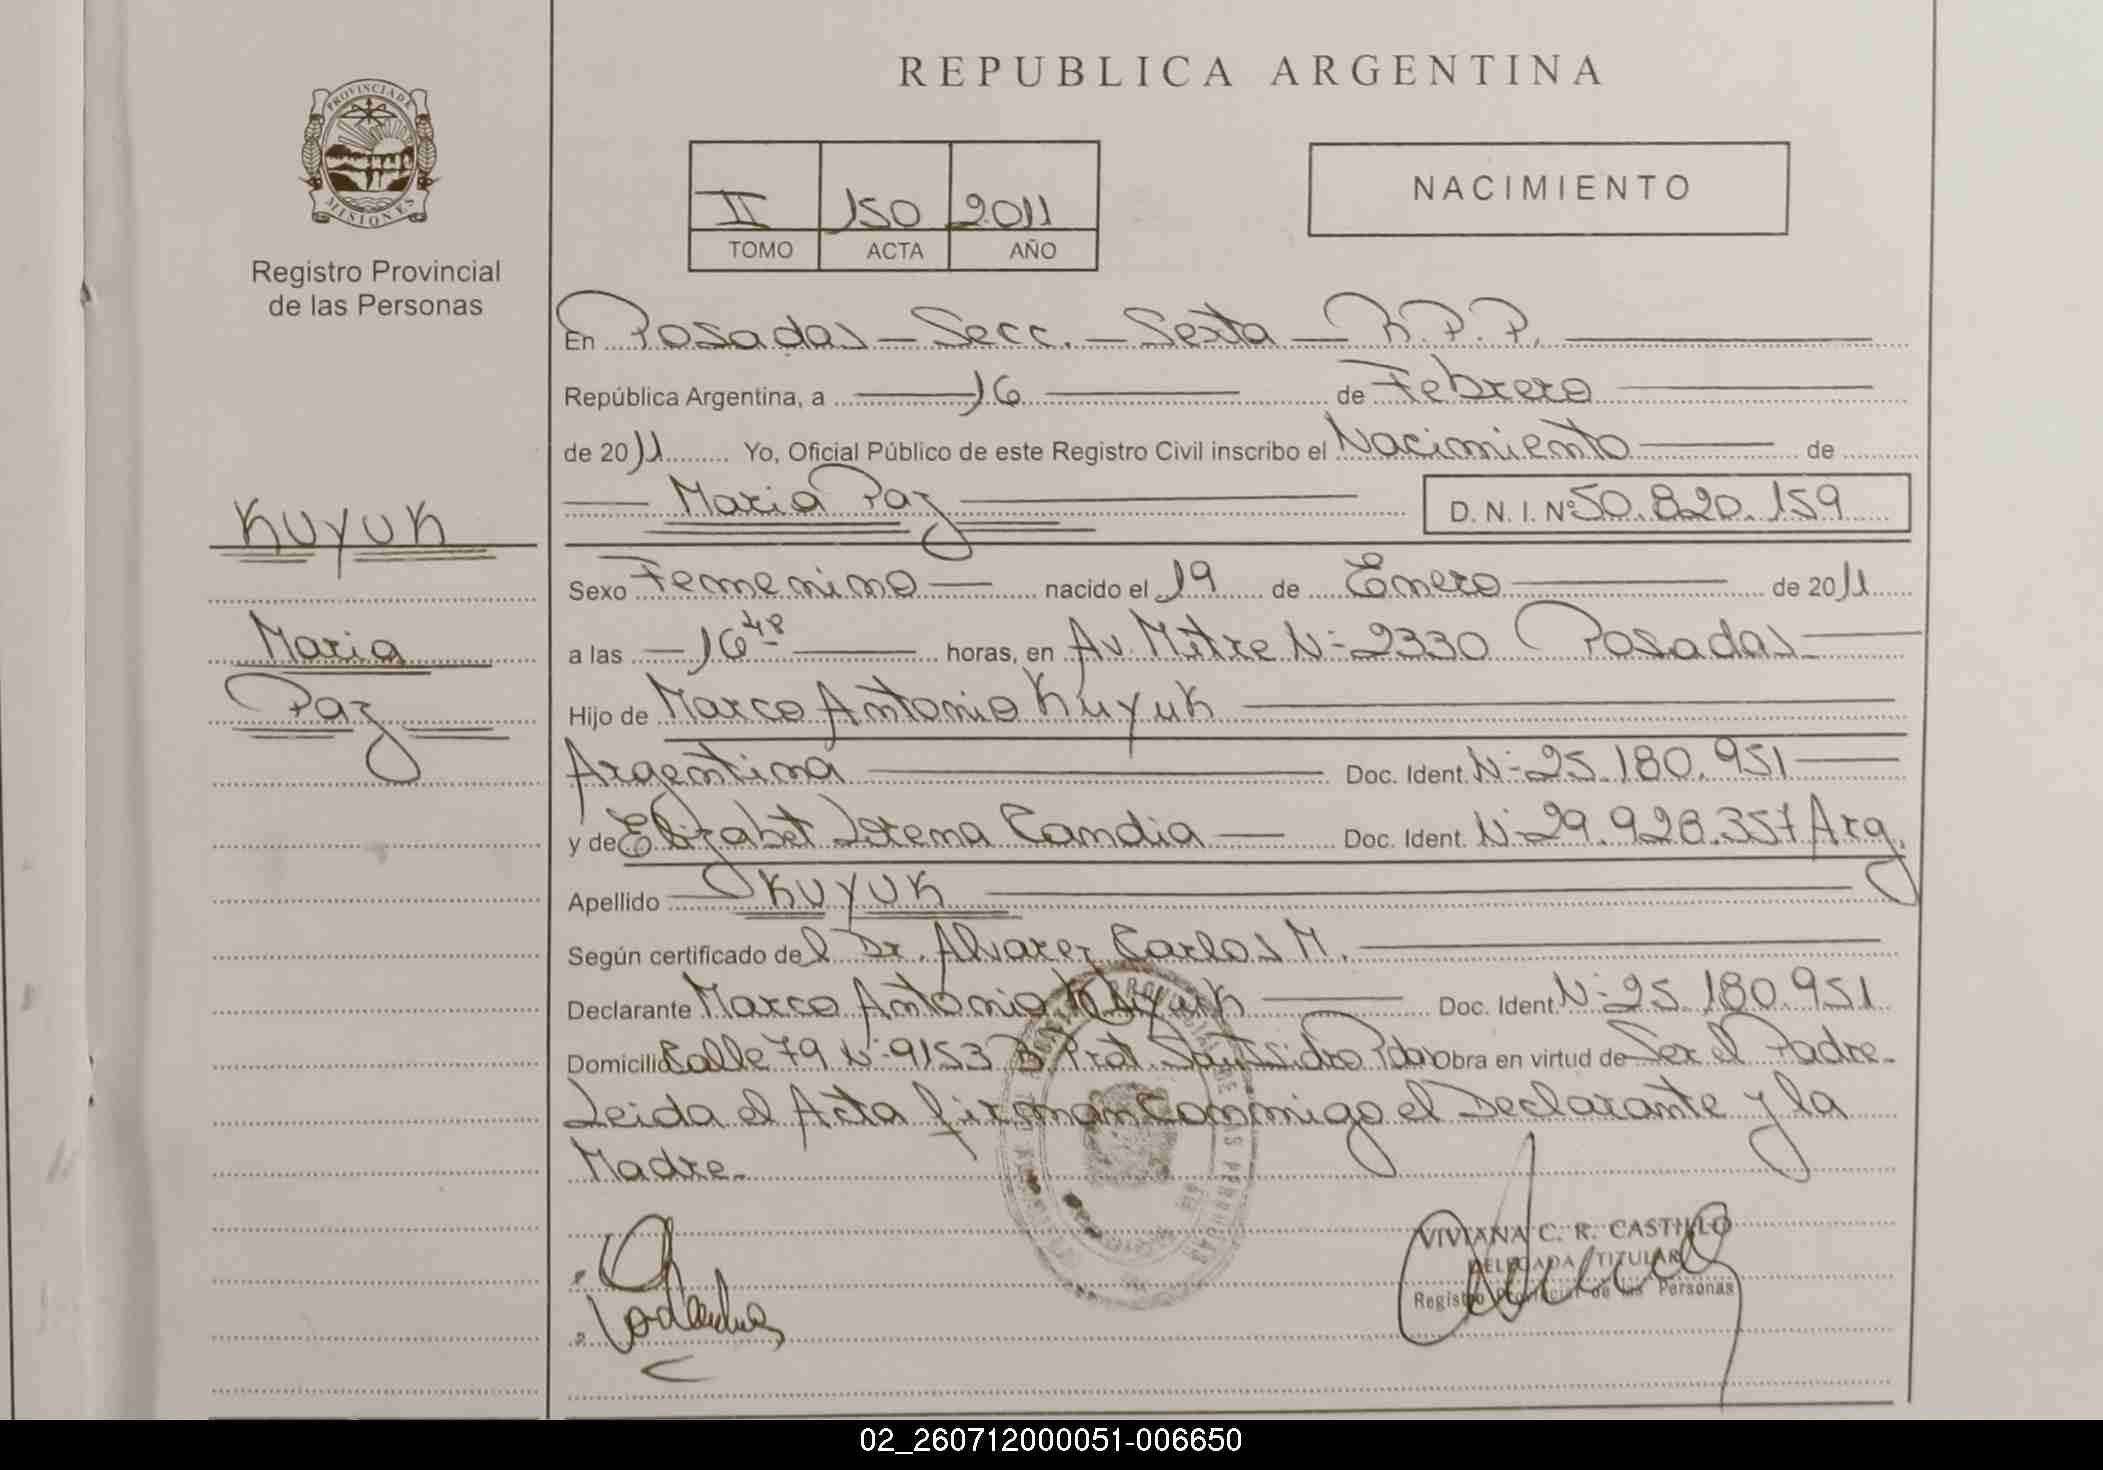 REPUBLICA ARGENTINA
PROVINCIA DE
MISIONES
Registro Provincial
de las Personas
II 150 2011
TOMO ACTA AÑO
NACIMIENTO
En Posadas - Secc. - Sexta - R.P.P.
República Argentina, a 16 de Febrero
de 2011 Yo, Oficial Público de este Registro Civil inscribo el Nacimiento de
Maria Paz D.N.I. Nº 50.820.159
KUYUK
Maria
Paz
Sexo Femenino nacido el 19 de Enero de 2011
a las 16 48 horas, en Av. Mitre N- 2330 Posadas
Hijo de Marco Antonio Kuyuk
Argentina Doc. Ident. N- 25.180.951
y de Elizabet Lorena Candia Doc. Ident. N- 29.928.357 Arg.
Apellido KUYUK
Según certificado del Dr. Alvarez Carlos M.
Declarante Marco Antonio Kuyuk Doc. Ident. N- 25.180.951
Domicilio Calle 79 N- 9153 B. Prat. Obra en virtud de Ser el Padre.
Leida el Acta firman Conmigo el Declarante y la
Madre.
VIVIANA C. R. CASTILLO
DELEGADA TITULAR
Registro Provincial de las Personas
02_260712000051-006650